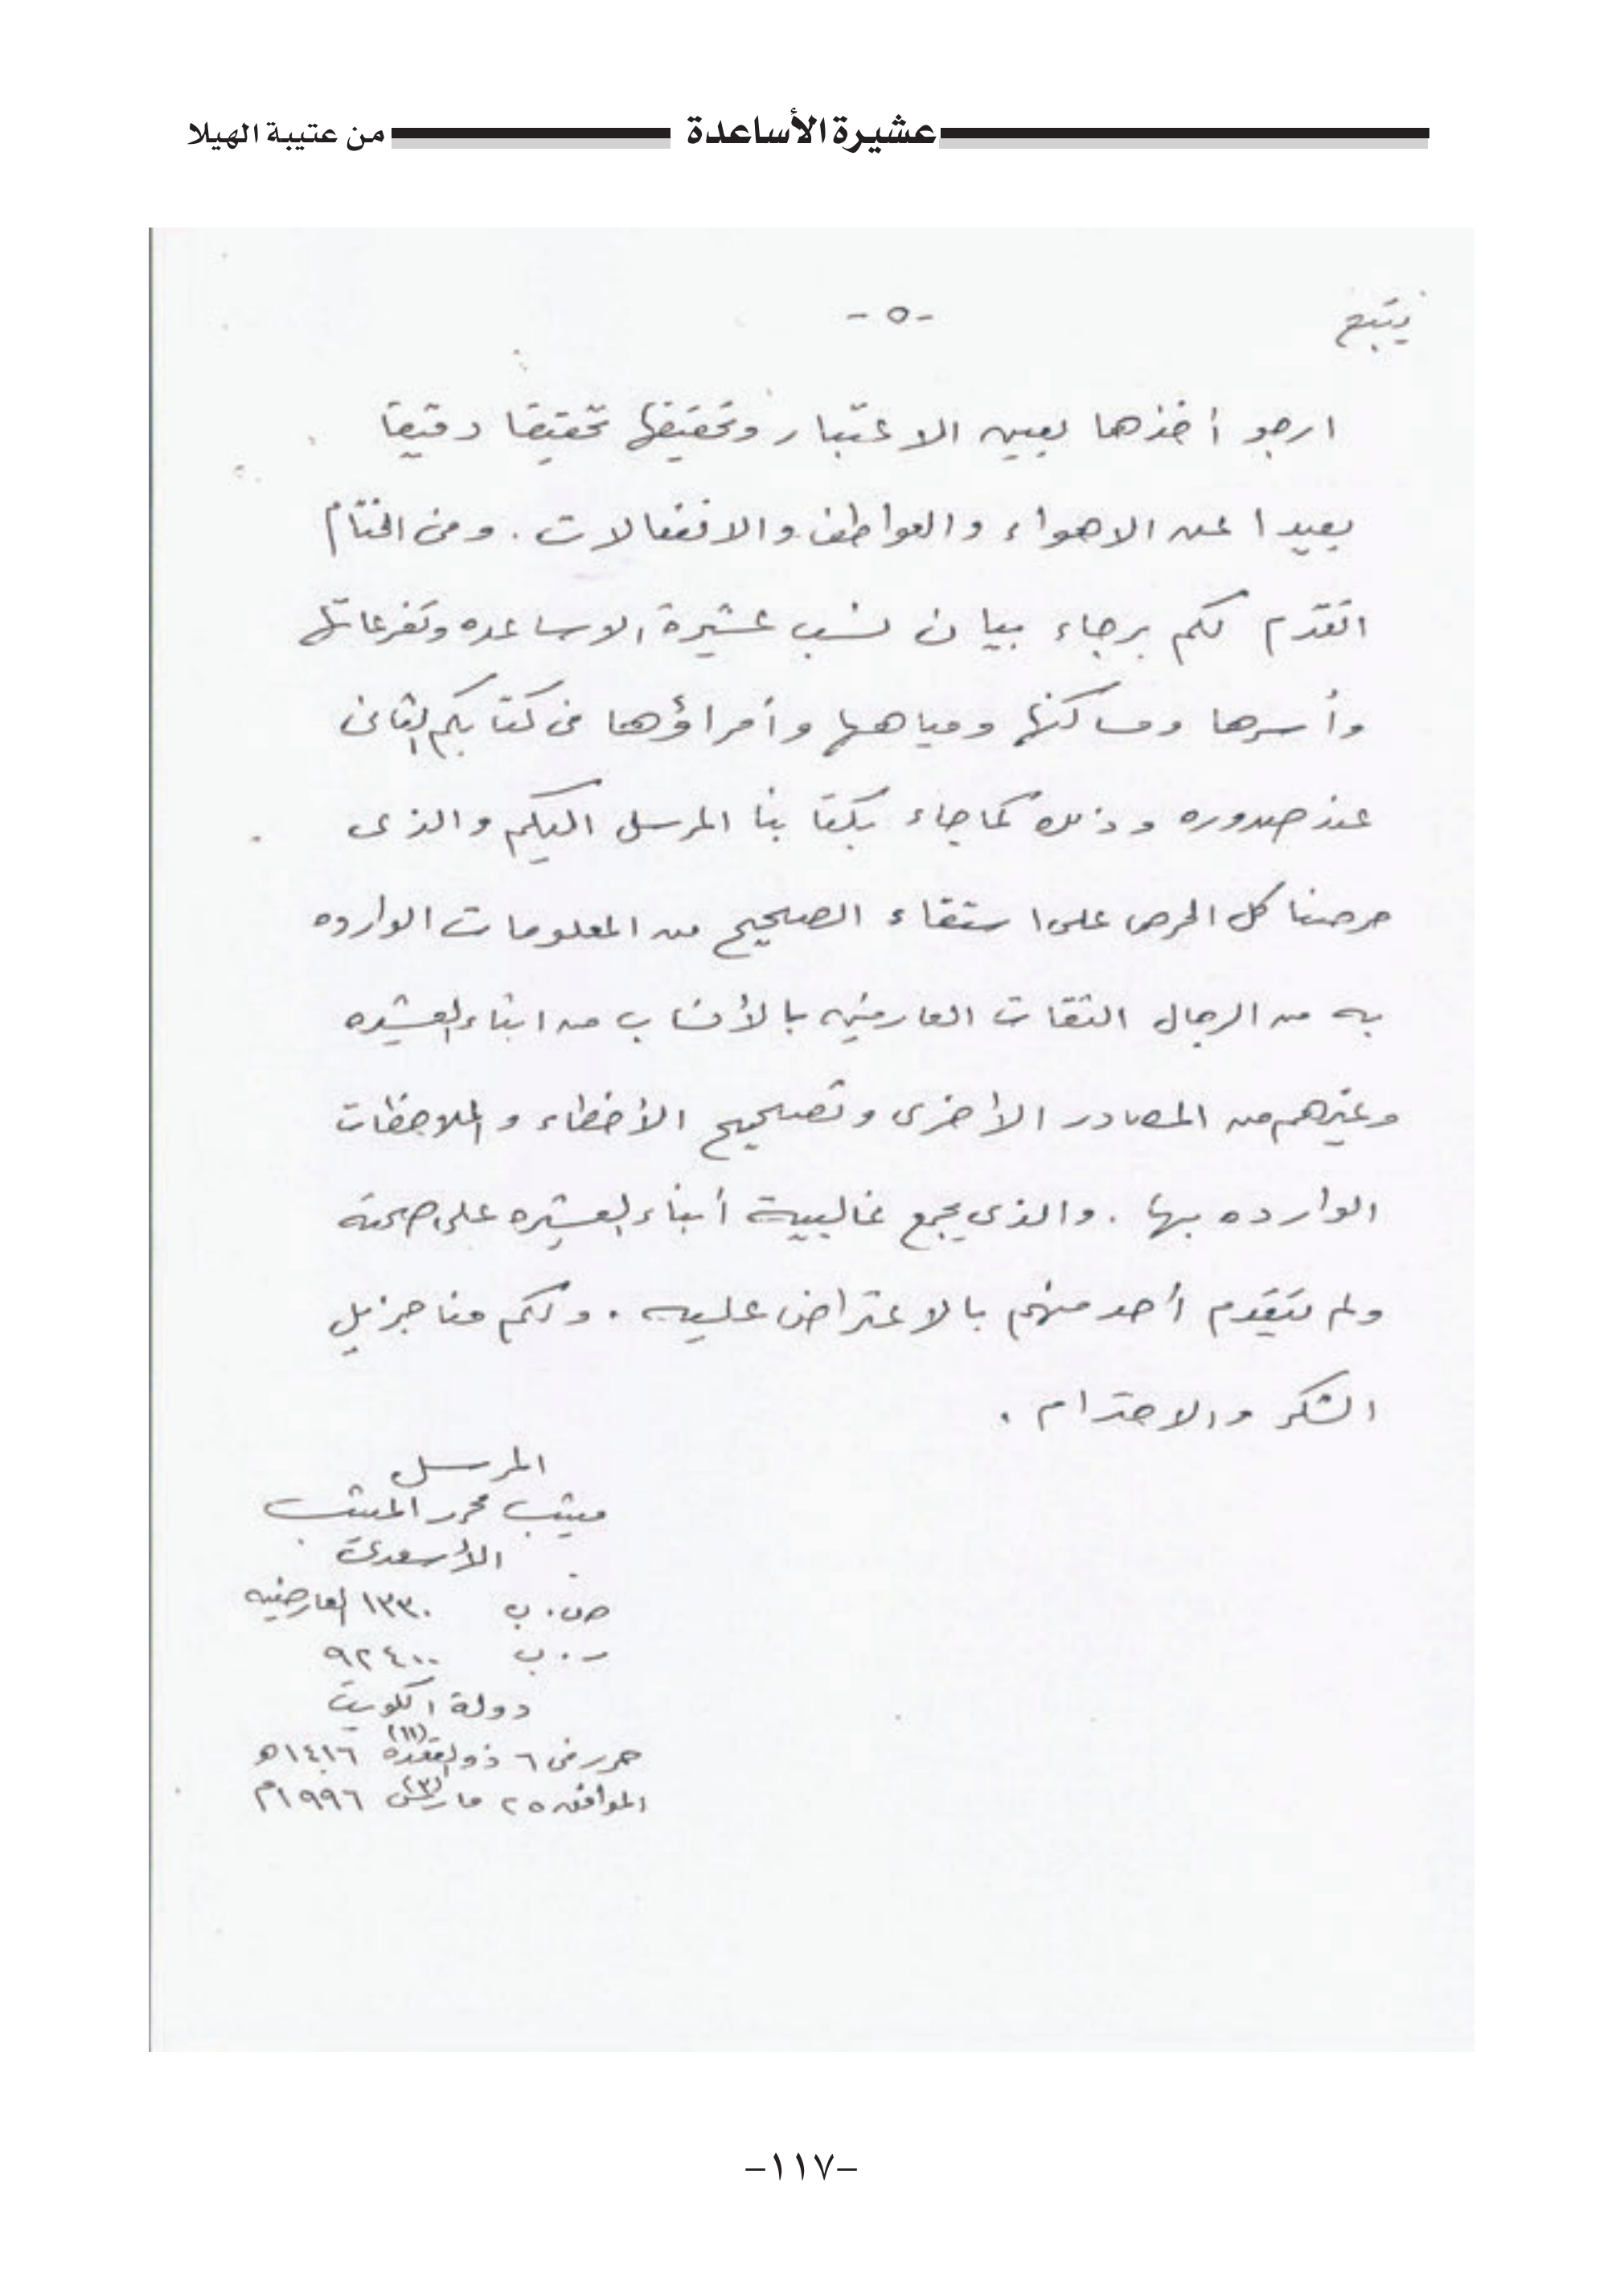 عشيرة الأساعدة من عتيبة الهيلا
يتبع
-٥-
ارجو أخذها بعين الاعتبار وتحقيقها تحقيقا دقيقا
بعيدا عن الاهواء والعواطف والانفعالات . وفي الختام
اتقدم لكم برجاء بيان نسب عشيرة الاساعده وتفرعاتها
وأسرها ومساكنها ومياهها وأمراؤها في كتابكم الثاني
عند صدوره وذلك كما جاء بكتابنا المرسل اليكم والذي
حرصنا كل الحرص على استقاء الصحيح من المعلومات الوارده
به من الرجال الثقات العارفين بالأنساب من ابناء العشيره
وغيرهم من المصادر الأخرى وتصحيح الأخطاء والملاحظات
الوارده بها . والذي يجمع غالبية أبناء العشيره على صحته
ولم يتقدم أحد منهم بالاعتراض عليه . ولكم منا جزيل
الشكر والاحترام .
المرسل
ميثب محمد الميثب
الأسعدي
ص . ب ١٣٣٠ العارضيه
ر . ب ٩٢٤٠٠
دولة الكويت
حرر في ٦ ذو القعده (١١) ١٤١٦ه
الموافق ٢٥ مارس (٣) ١٩٩٦م
-١١٧-